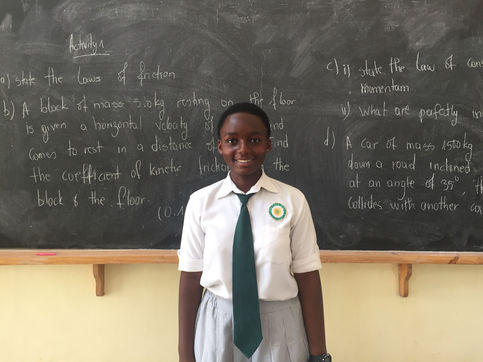 Activity 1
a) state the Laws of friction
b) A block of mass 5.0kg resting on the floor
is given a horizontal velocity of
and
comes to rest in a distance of
the coefficient of kinetic friction
the
block & the floor.
(0.1
c) i) state the Law of cons
momentum
ii) what are perfectly in
d) A car of mass 1500kg
down a road inclined
at an angle of 35°
collides with another ca